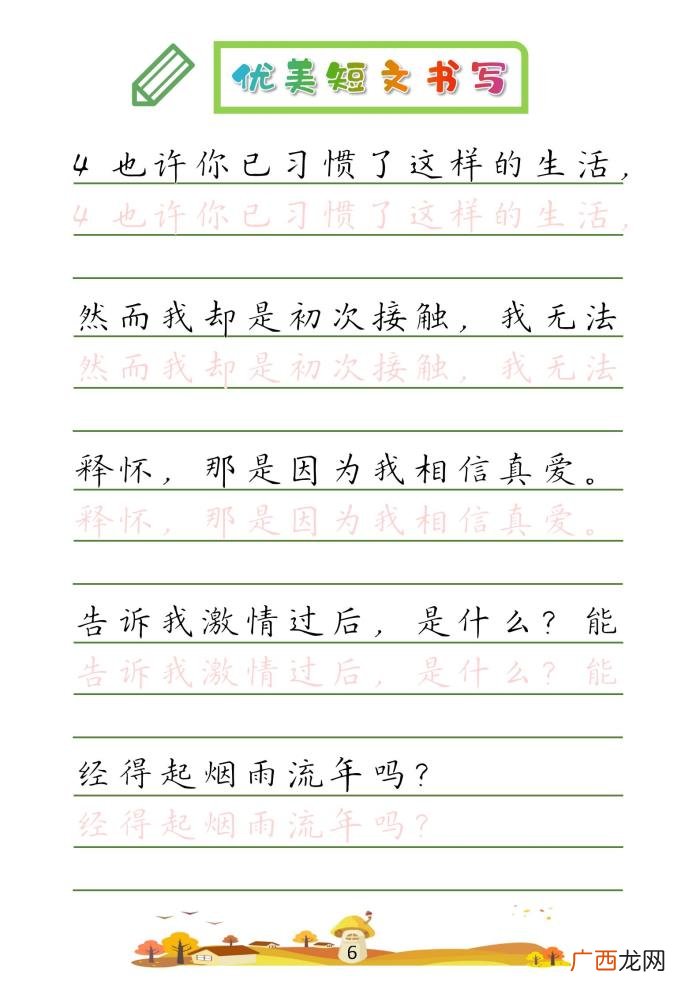 优美短文书写
4 也许你已习惯了这样的生活，
4 也许你已习惯了这样的生活，
然而我却是初次接触，我无法
然而我却是初次接触，我无法
释怀，那是因为我相信真爱。
释怀，那是因为我相信真爱。
告诉我激情过后，是什么？能
告诉我激情过后，是什么？能
经得起烟雨流年吗？
经得起烟雨流年吗？
6
广西龙网